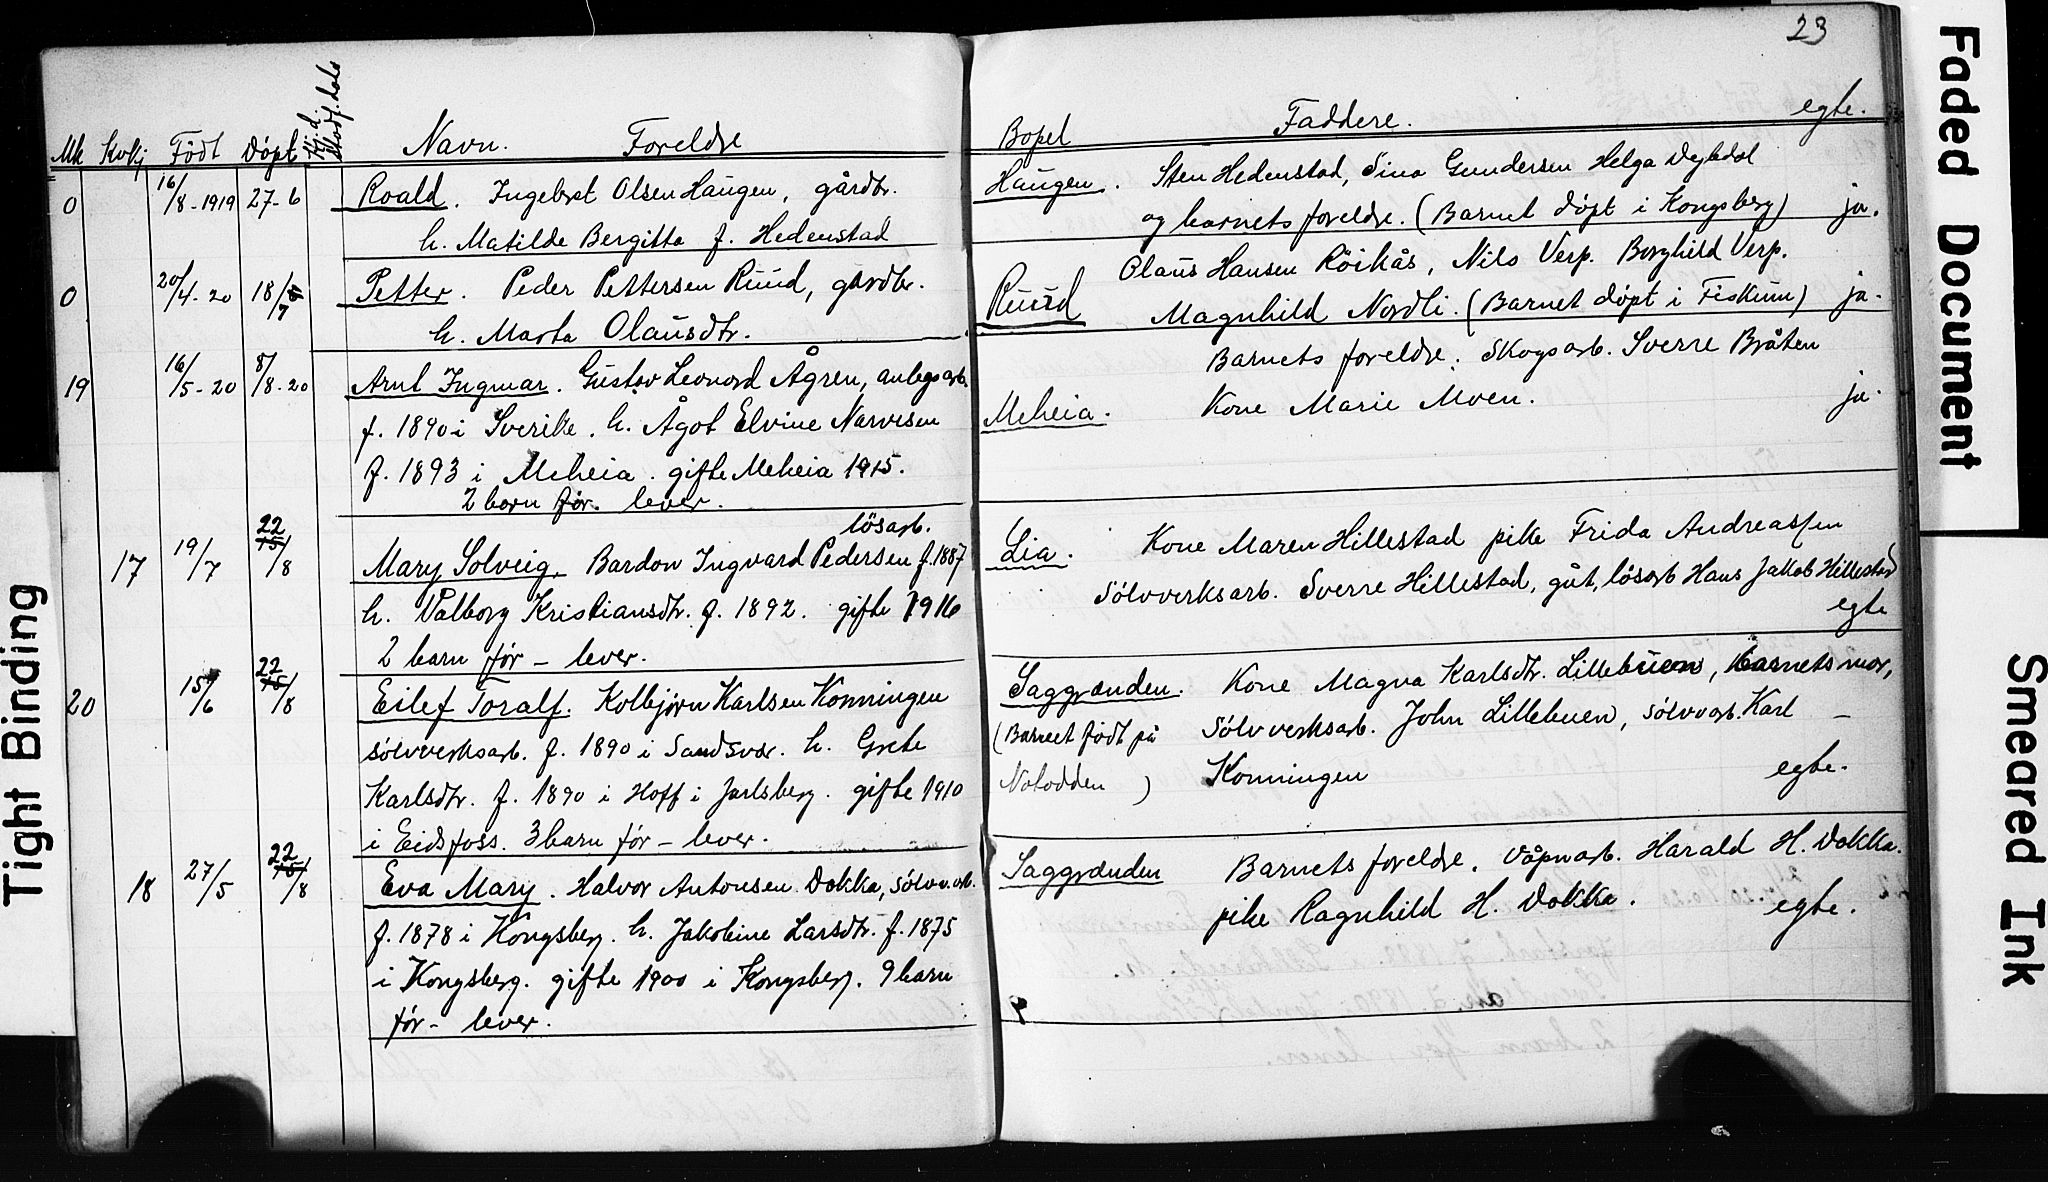 23
Mk Kvkj Født Døpt Hjd. Navn. Foreldre
0 16/8-1919 27-6 Roald. Ingebret Olsen Haugen, gårdbr.
h. Matilde Bergitte f. Hedenstad
0 20/4-20 18/7 Petter. Peder Pettersen Ruud, gårdbr.
h. Marta Olausdtr.
19 16/5-20 8/8-20 Arnt Ingmar. Gustav Leonard Ågren, anlegsarb.
f. 1890 i Sverike. h. Ågot Elvine Narvesen
f. 1893 i Meheia. gifte Meheia 1915.
2 born før. lever.
lösarb.
17 19/7 22/8 Mary Solveig. Bardon Ingvard Pedersen f. 1887
h. Valborg Kristiansdtr. f. 1892. gifte 1916
2 barn før - lever.
20 15/6 22/8 Eilef Toralf. Kolbjørn Karlsen Konningen
sølvverksarb. f. 1890 i Sandsvær. h. Grete
Karlsdtr. f. 1890 i Hoff i Jarlsberg. gifte 1910
i Eidsfoss. 3 barn før - lever.
18 27/5 22/8 Eva Mary. Halvor Antonsen Dokka, sølvv.arb.
f. 1878 i Kongsberg. h. Jakobine Larsdtr. f. 1875
i Kongsberg. gifte 1900 i Kongsberg. 9 barn
før - lever.
Bopel Faddere. egte.
Haugen. Sten Hedenstad, Sina Gundersen Helga
og barnets foreldre. (Barnet døpt i Kongsberg) ja.
Olaus Hansen Röikås, Nils Verp. Borghild Verp.
Ruud Magnhild Nordli. (Barnet døpt i Fiskum) ja.
Barnets foreldre. Skogsarb. Sverre Bråten
Meheia. Kone Marie Moen. ja.
Lia. Kone Maren Hillestad pike Frida Andreassen
Sølvverksarb. Sverre Hillestad, gut, lösarb Hans Jakob Hillestad
egte
Saggrenden. Kone Magna Karlsdtr. Lillebuen, barnets mor,
(Barnet født på Sølvverksarb. John Lillebuen, sølvv.arb. Karl -
Notodden) Konningen egte.
Saggrenden Barnets foreldre. Våpnarb. Harald H. Dokka.
pike Ragnhild H. Dokka. egte.
Tight Binding
Faded Document
Smeared Ink